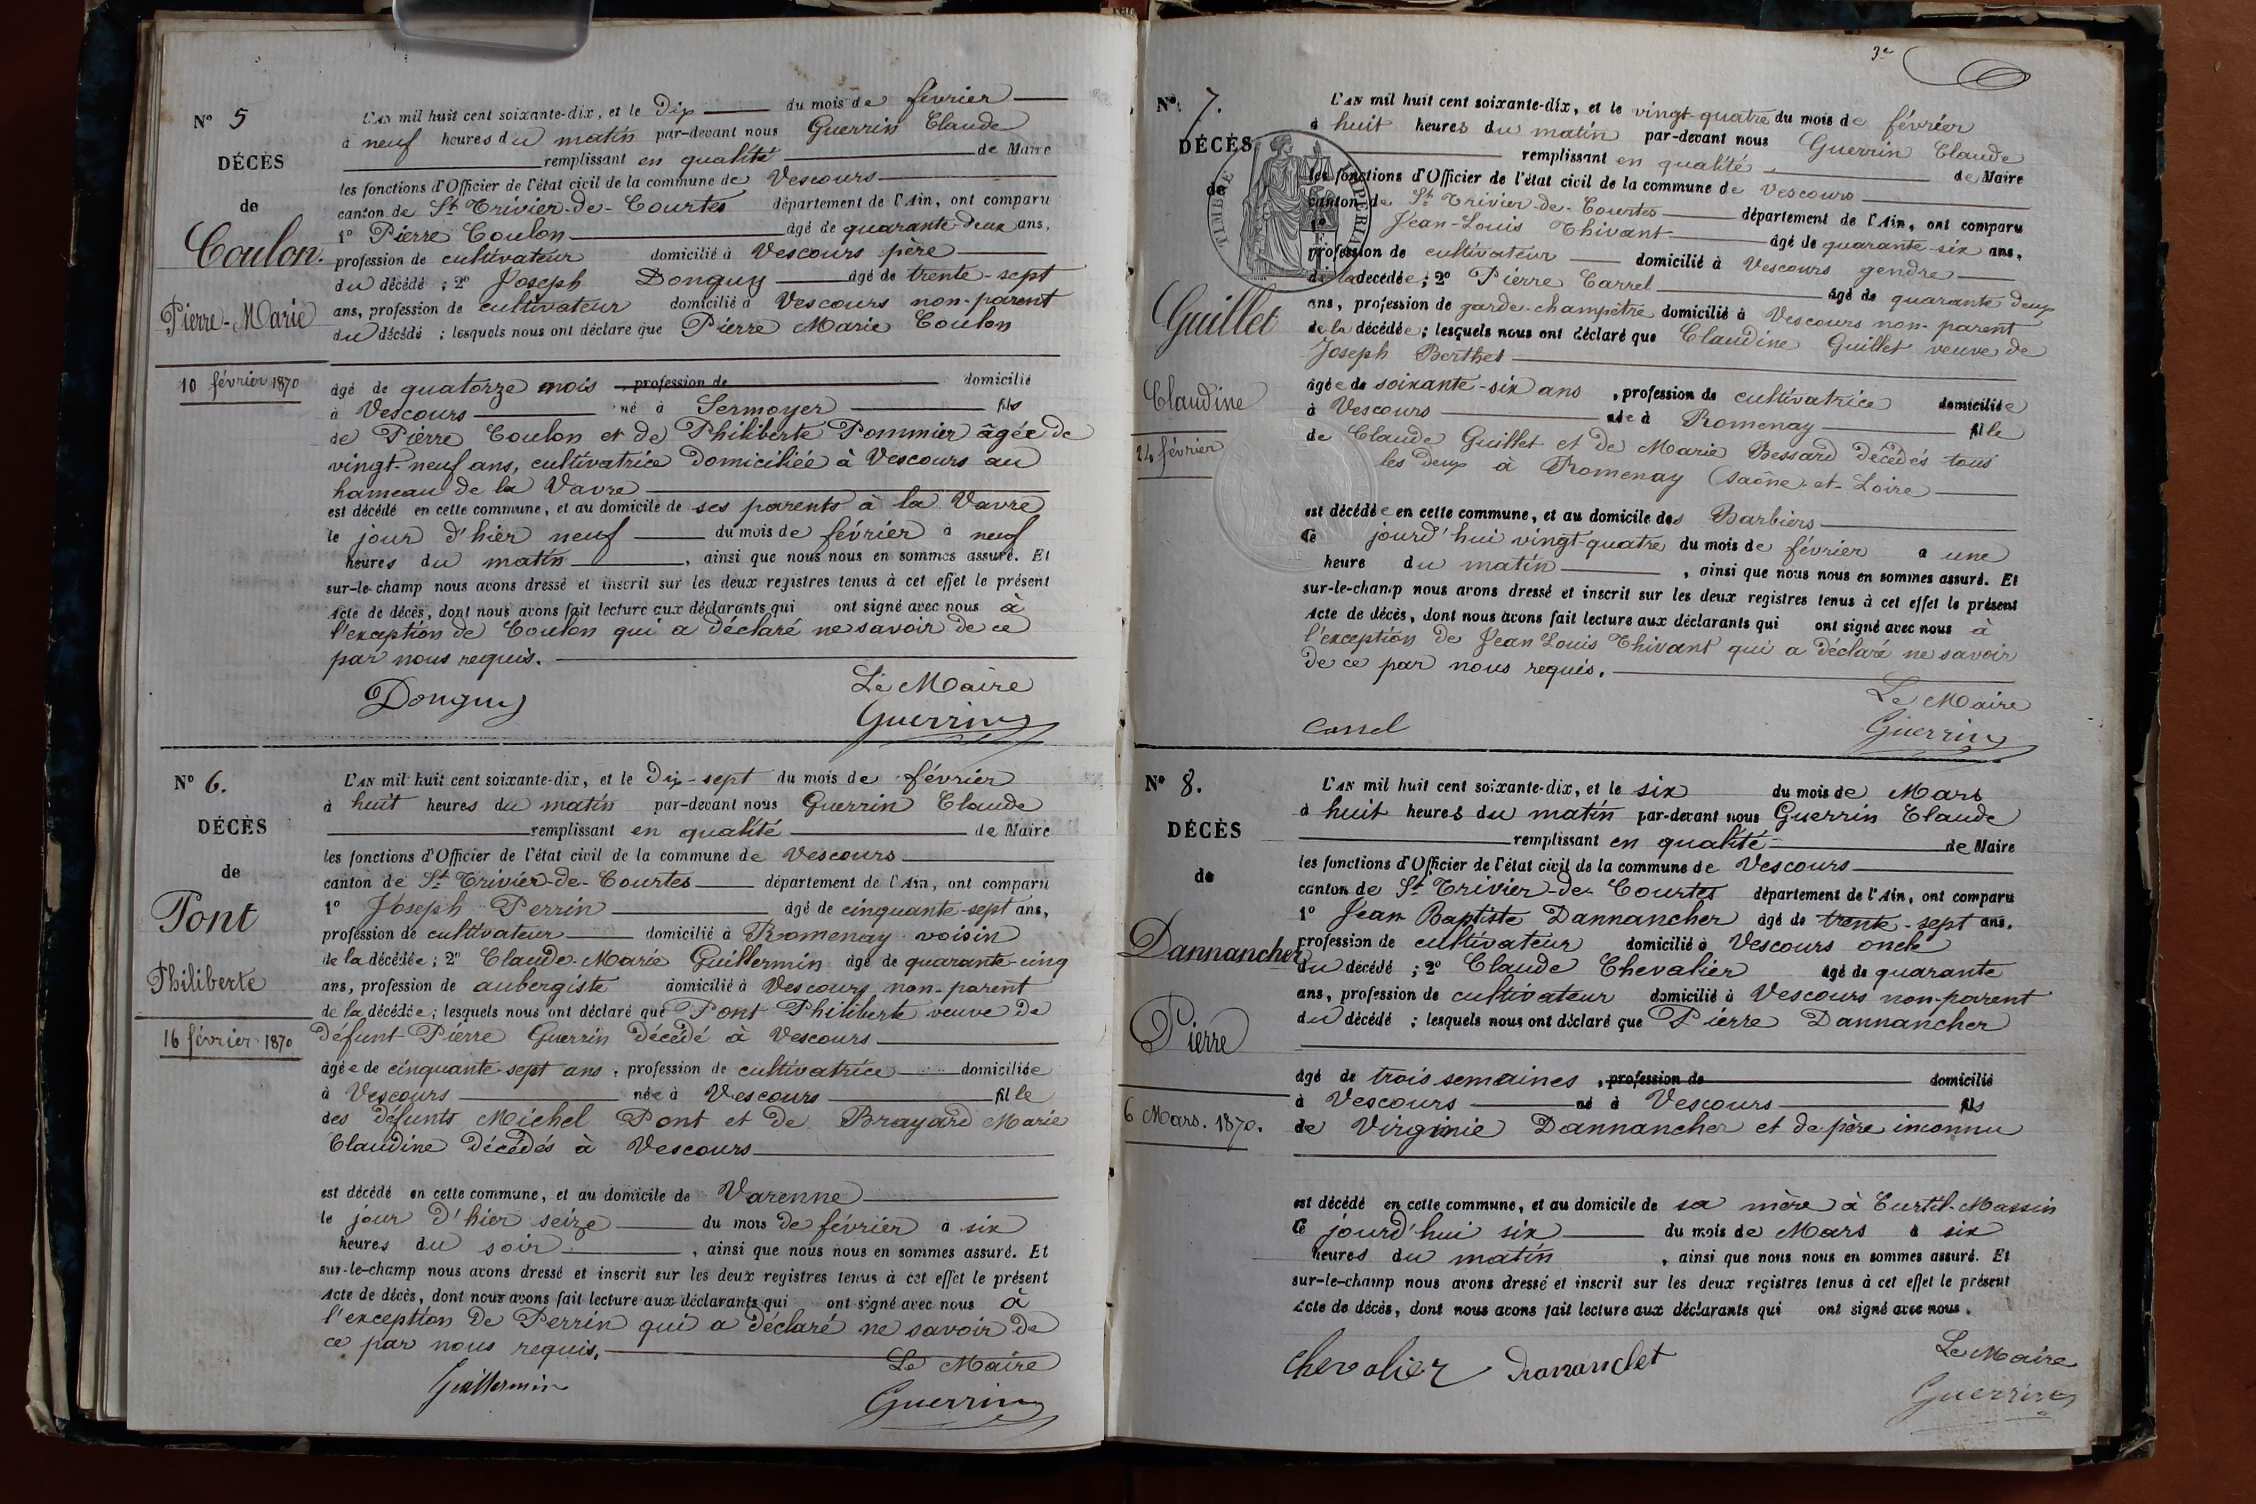 Nº 5
DÉCÈS
de
Coulon.
Pierre-Marie
10 février 1870
L'AN mil huit cent soixante-dix, et le Dix du mois de février
à neuf heures du matin par-devant nous Guerrin Claude
remplissant en qualité de Maire
les fonctions d'Officier de l'état civil de la commune de Vescours
canton de St Trivier-de-Courtes département de l'Ain, ont comparu
1º Pierre Coulon âgé de quarante-deux ans,
profession de cultivateur domicilié à Vescours père
du décédé ; 2º Joseph Donguy âgé de trente-sept
ans, profession de cultivateur domicilié à Vescours non-parent
du décédé ; lesquels nous ont déclaré que Pierre Marie Coulon
âgé de quatorze mois profession de domicilié
à Vescours né à Sermoyer fils
de Pierre Coulon et de Philiberte Pommier âgée de
vingt-neuf ans, cultivatrice domiciliée à Vescours au
hameau de la Vavre
est décédé en cette commune, et au domicile de ses parents à la Vavre
le jour d'hier neuf du mois de février à neuf
heures du matin, ainsi que nous nous en sommes assuré. Et
sur-le-champ nous avons dressé et inscrit sur les deux registres tenus à cet effet le présent
Acte de décès, dont nous avons fait lecture aux déclarants qui ont signé avec nous à
l'exception de Coulon qui a déclaré ne savoir de ce
par nous requis.
Le Maire
Donguy Guerrin
Nº 6.
DÉCÈS
de
Pont
Philiberte
16 février 1870
L'AN mil huit cent soixante-dix, et le Dix-sept du mois de février
à huit heures du matin par-devant nous Guerrin Claude
remplissant en qualité de Maire
les fonctions d'Officier de l'état civil de la commune de Vescours
canton de St Trivier-de-Courtes département de l'Ain, ont comparu
1º Joseph Perrin âgé de cinquante-sept ans,
profession de cultivateur domicilié à Romenay voisin
de la décédée ; 2º Claude-Marie Guillermin âgé de quarante-cinq
ans, profession de aubergiste domicilié à Vescours non-parent
de la décédée ; lesquels nous ont déclaré que Pont Philiberte veuve de
défunt Pierre Guerrin décédé à Vescours
âgée de cinquante-sept ans, profession de cultivatrice domiciliée
à Vescours née à Vescours fille
des défunts Michel Pont et de Brayard Marie
Claudine décédés à Vescours
est décédé en cette commune, et au domicile de Varenne
le jour d'hier seize du mois de février à six
heures du soir, ainsi que nous nous en sommes assuré. Et
sur-le-champ nous avons dressé et inscrit sur les deux registres tenus à cet effet le présent
Acte de décès, dont nous avons fait lecture aux déclarants qui ont signé avec nous à
l'exception de Perrin qui a déclaré ne savoir de
ce par nous requis.
Le Maire
Guillermin Guerrin
3e
Nº 7.
DÉCÈS
de
Guillet
Claudine
24 février
TIMBRE IMPERIAL
L'AN mil huit cent soixante-dix, et le vingt-quatre du mois de février
à huit heures du matin par-devant nous Guerrin Claude
remplissant en qualité de Maire
les fonctions d'Officier de l'état civil de la commune de Vescours
canton de St Trivier-de-Courtes département de l'Ain, ont comparu
1º Jean-Louis Thivant âgé de quarante-six ans,
profession de cultivateur domicilié à Vescours gendre
de la décédée ; 2º Pierre Carrel âgé de quarante deux
ans, profession de garde-champêtre domicilié à Vescours non-parent
de la décédée ; lesquels nous ont déclaré que Claudine Guillet veuve de
Joseph Berthet
âgée de soixante-six ans, profession de cultivatrice domiciliée
à Vescours née à Romenay fille
de Claude Guillet et de Marie Bessard décédés tous
les deux à Romenay (Saône-et-Loire
est décédée en cette commune, et au domicile des Barbiers
Ce jourd'hui vingt-quatre du mois de février à une
heure du matin, ainsi que nous nous en sommes assuré. Et
sur-le-champ nous avons dressé et inscrit sur les deux registres tenus à cet effet le présent
Acte de décès, dont nous avons fait lecture aux déclarants qui ont signé avec nous à
l'exception de Jean Louis Thivant qui a déclaré ne savoir
de ce par nous requis.
Le Maire
Carrel Guerrin
Nº 8.
DÉCÈS
de
Dannancher
Pierre
6 Mars. 1870.
L'AN mil huit cent soixante-dix, et le six du mois de Mars
à huit heures du matin par-devant nous Guerrin Claude
remplissant en qualité de Maire
les fonctions d'Officier de l'état civil de la commune de Vescours
canton de St Trivier-de-Courtes département de l'Ain, ont comparu
1º Jean Baptiste Dannancher âgé de trente-sept ans,
profession de cultivateur domicilié à Vescours oncle
du décédé ; 2º Claude Chevalier âgé de quarante
ans, profession de cultivateur domicilié à Vescours non-parent
du décédé ; lesquels nous ont déclaré que Pierre Dannancher
âgé de trois semaines, profession de domicilié
à Vescours né à Vescours fils
de Virginie Dannancher et de père inconnu
est décédé en cette commune, et au domicile de sa mère à Curtil-Massin
Ce jourd'hui six du mois de Mars à six
heures du matin, ainsi que nous nous en sommes assuré. Et
sur-le-champ nous avons dressé et inscrit sur les deux registres tenus à cet effet le présent
Acte de décès, dont nous avons fait lecture aux déclarants qui ont signé avec nous.
Le Maire
Chevalier Guerrin